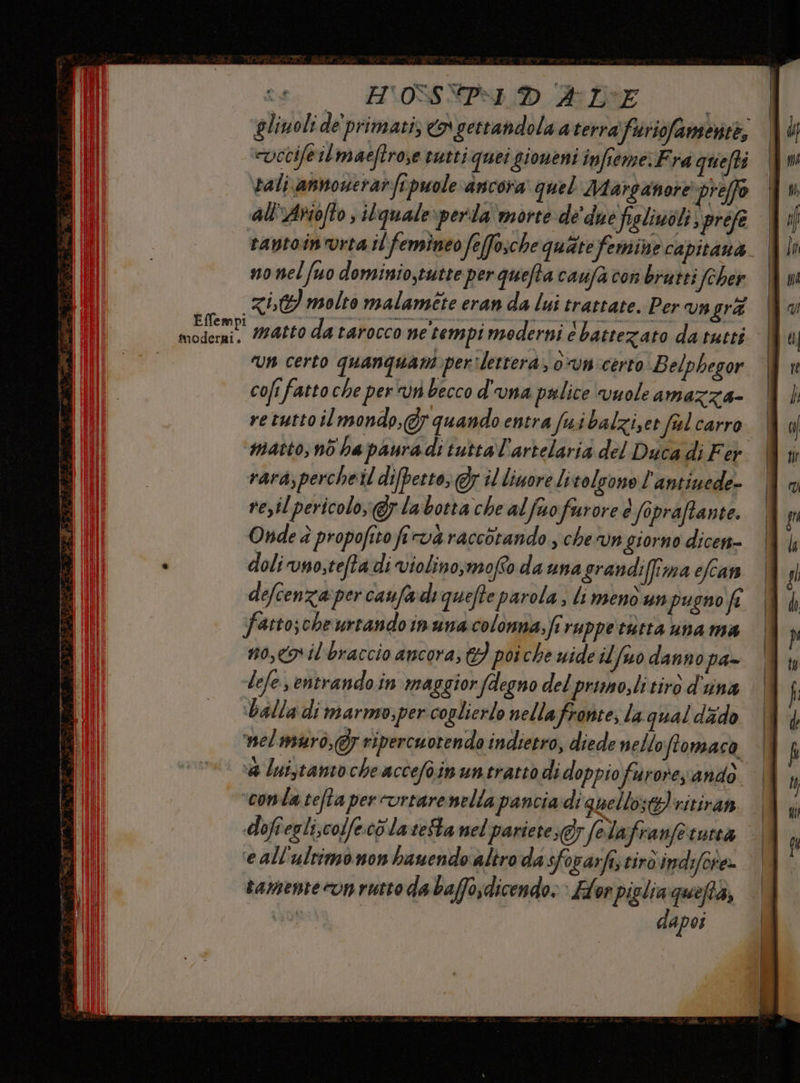 HOSPIDALE
gliuoli de'primati, & gettandola a terra furiosamente,
vccise il maestro, e tutti quei gioueni insieme. Fra questi
tali annouerar si puole ancora quel Marganore presso
all'Ariosto, ilquale per la morte de'due figliuoli, prese
tanto in vrta il femineo sesso, che quāte femine capitaua
no nel suo dominio, tutte per questa causa con brutti scher
zi, & molto malamēte eran da lui trattate. Per vn grā
Essempi
moderni.
matto da tarocco ne'tempi moderni è battezato da tutti
vn certo quanquam per lettera, ò vn certo Belphegor
cosi fatto che per vn becco d'vna pulice vuole amazza-
re tutto il mondo, & quando entra sui balzi, et sul carro
matto, nō ha paura di tutta l'artelaria del Duca di Fer
rara, perche il dispetto, & il liuore li tolgono l'antiuede-
re, il pericolo, & la botta che al suo furore è soprastante.
Onde à proposito si và raccōtando, che vn giorno dicen-
doli vno, testa di violino, mosso da una grandissima escan
descenza per causa di queste parola, li menò un pugno sì
fatto, che urtando in una colonna, si ruppe tutta una ma
no, & il braccio ancora, & poi che uide il suo danno pa-
lese, entrando in maggior sdegno del primo, li tirò d'una
balla di marmo, per coglierlo nella fronte, la qual dādo
nel muro, & ripercuotendo indietro, diede nello stomaco
à lui, tanto che acceso in un tratto di doppio furore, andò
con la testa per vrtare nella pancia di quello; & ritiran
dosi egli, colse cō la testa nel pariete, & se la franse tutta
e all'ultimo non hauendo altro da sfogarsi, tirò indiscre-
tamente vn rutto da basso, dicendo. Hor piglia questa,
dapoi